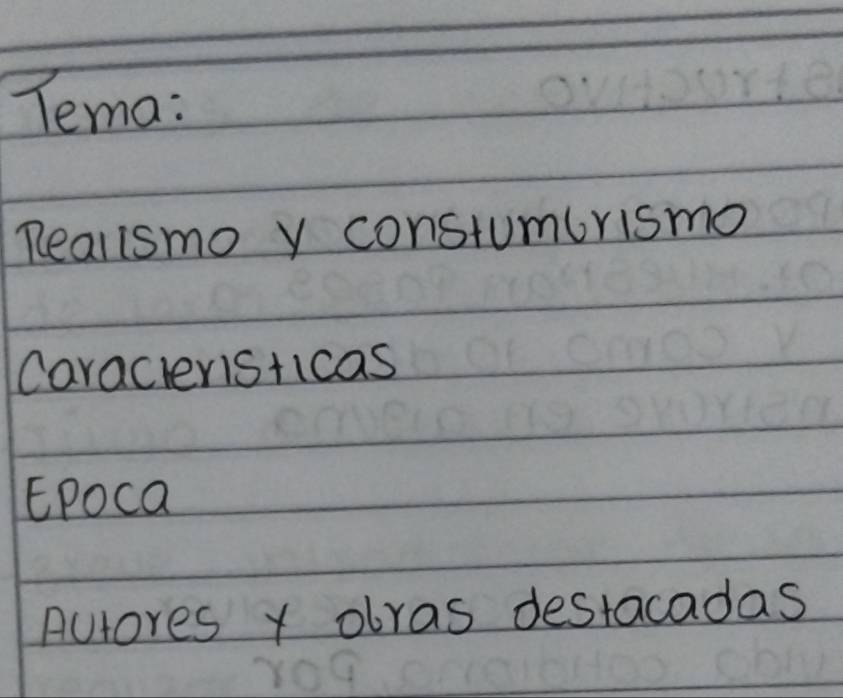 Tema:
Realismo y constumbrismo
Caracteristicas
Epoca
Autores y obras destacadas